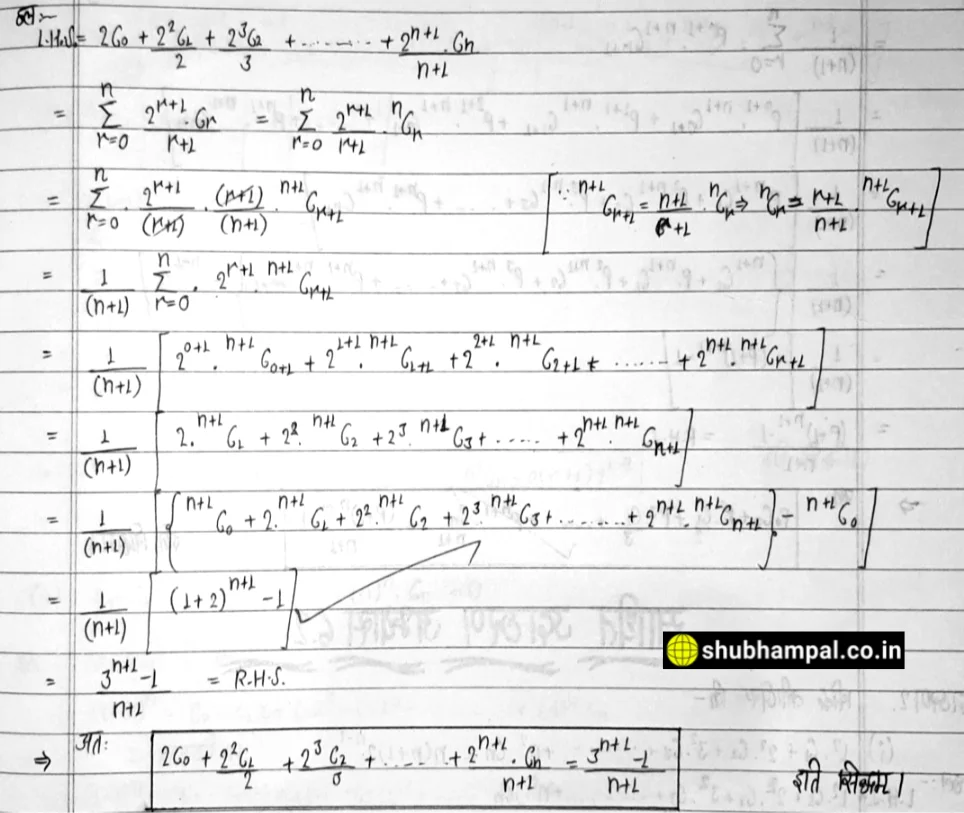 हल:-
L.H.S. = 2C₀ + 2²C₁/2 + 2³C₂/3 + ........ + 2ⁿ⁺¹.Cₙ/n+1
= Σ(r=0 to n) 2ʳ⁺¹Cᵣ/r+1 = Σ(r=0 to n) 2ʳ⁺¹/r+1 . ⁿCᵣ
= Σ(r=0 to n) . 2ʳ⁺¹/(r+1) . (r+1)/(n+1) . ⁿ⁺¹Cᵣ₊₁ [∵ ⁿ⁺¹Cᵣ₊₁ = n+1/r+1 . ⁿCᵣ ⇒ ⁿCᵣ = r+1/n+1 ⁿ⁺¹Cᵣ₊₁]
= 1/(n+1) Σ(r=0 to n) . 2ʳ⁺¹ ⁿ⁺¹Cᵣ₊₁
= 1/(n+1) [2⁰⁺¹ . ⁿ⁺¹C₀₊₁ + 2¹⁺¹ . ⁿ⁺¹C₁₊₁ + 2²⁺¹ . ⁿ⁺¹C₂₊₁ + ...... + 2ⁿ⁺¹ . ⁿ⁺¹Cₙ₊₁]
= 1/(n+1) [2.ⁿ⁺¹C₁ + 2².ⁿ⁺¹C₂ + 2³.ⁿ⁺¹C₃ + ..... + 2ⁿ⁺¹.ⁿ⁺¹Cₙ₊₁]
= 1/(n+1) [{ⁿ⁺¹C₀ + 2.ⁿ⁺¹C₁ + 2².ⁿ⁺¹C₂ + 2³.ⁿ⁺¹C₃ + ........ + 2ⁿ⁺¹ ⁿ⁺¹Cₙ₊₁} - ⁿ⁺¹C₀]
= 1/(n+1) [(1+2)ⁿ⁺¹ - 1]
shubhampal.co.in
= 3ⁿ⁺¹-1/n+1 = R.H.S.
⇒ अत: 2C₀ + 2²C₁/2 + 2³C₂/3 + ..... + 2ⁿ⁺¹.Cₙ/n+1 = 3ⁿ⁺¹-1/n+1 इति सिद्धम्।